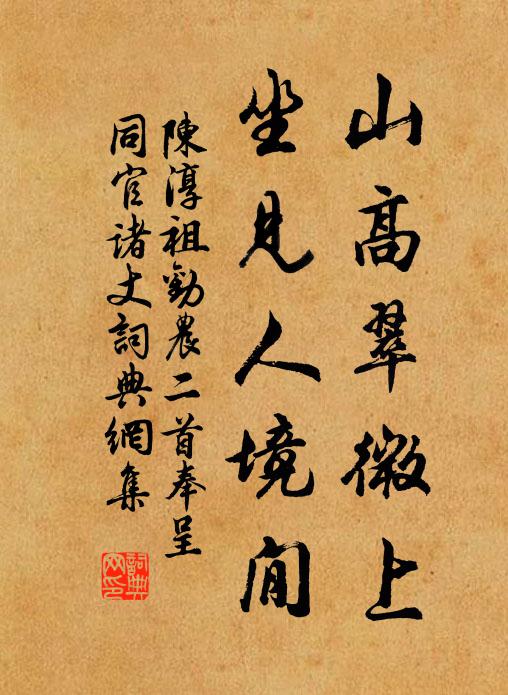 山高翠微上
坐見人境閒
陳淳祖勸農二首奉呈
同官諸丈詞典網集
詞典网印